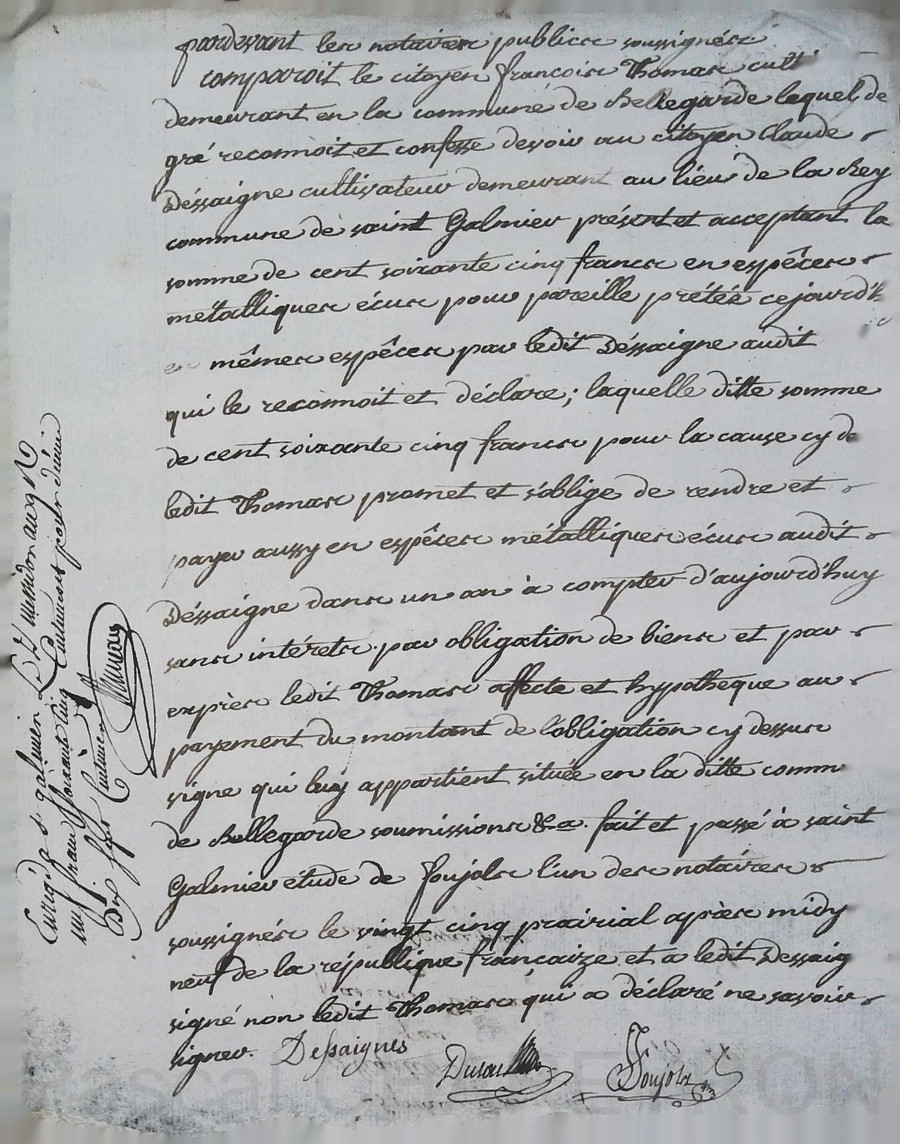 pardevant les notaires publics soussignés
comparoit le citoyen francois Thomas cult
demeurant en la commune de Bellegarde lequel de
gré reconnoit et confesse devoir au citoyen Claude
Déssaigne cultivateur demeurant au lieu de la Rey
commune de saint Galmier présent et acceptant la
somme de cent soixante cinq francs en espêces
métalliques écus pour pareille prétéé cejourd'h
en mêmes espêces par ledit Déssaigne audit
qui le reconnoit et déclare; laquelle ditte somme
de cent soixante cinq francs pour la cause cy de
ledit Thomas promet et s'oblige de rendre et
payer aussy en espêces métalliques écus audit
Déssaigne dans un an à compter d'aujourd'huy
sans intérets par obligation de biens et par
exprès ledit Thomas affecte et hypotheque au
payement du montant de l'obligation cy dessus
vigne qui luy appartient située en la ditte comm
de Bellegarde soumissions &a. fait et passé à saint
Galmier étude de Joujols l'un des notaires
soussignés le vingt cinq prairial après midy
neuf de la république françaize et a ledit Dessaig
signé non ledit Thomas qui a déclaré ne savoir
signer. Dessaignes
Joujols
Enrg. à s. galmier le messidor an 9
un franc soixante cinq Centimes pour
dix sept Centimes